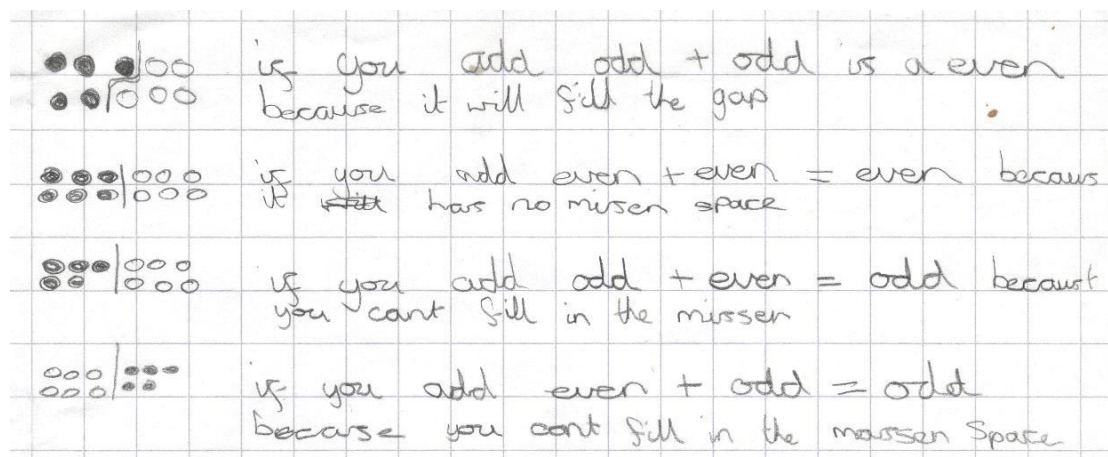 if you add odd + odd is a even
because it will fill the gap
if you add even + even = even becaus
it has no misen space
if you add odd + even = odd becaust
you cant fill in the missen
if you add even + odd = odd
because you cant fill in the maussen Space